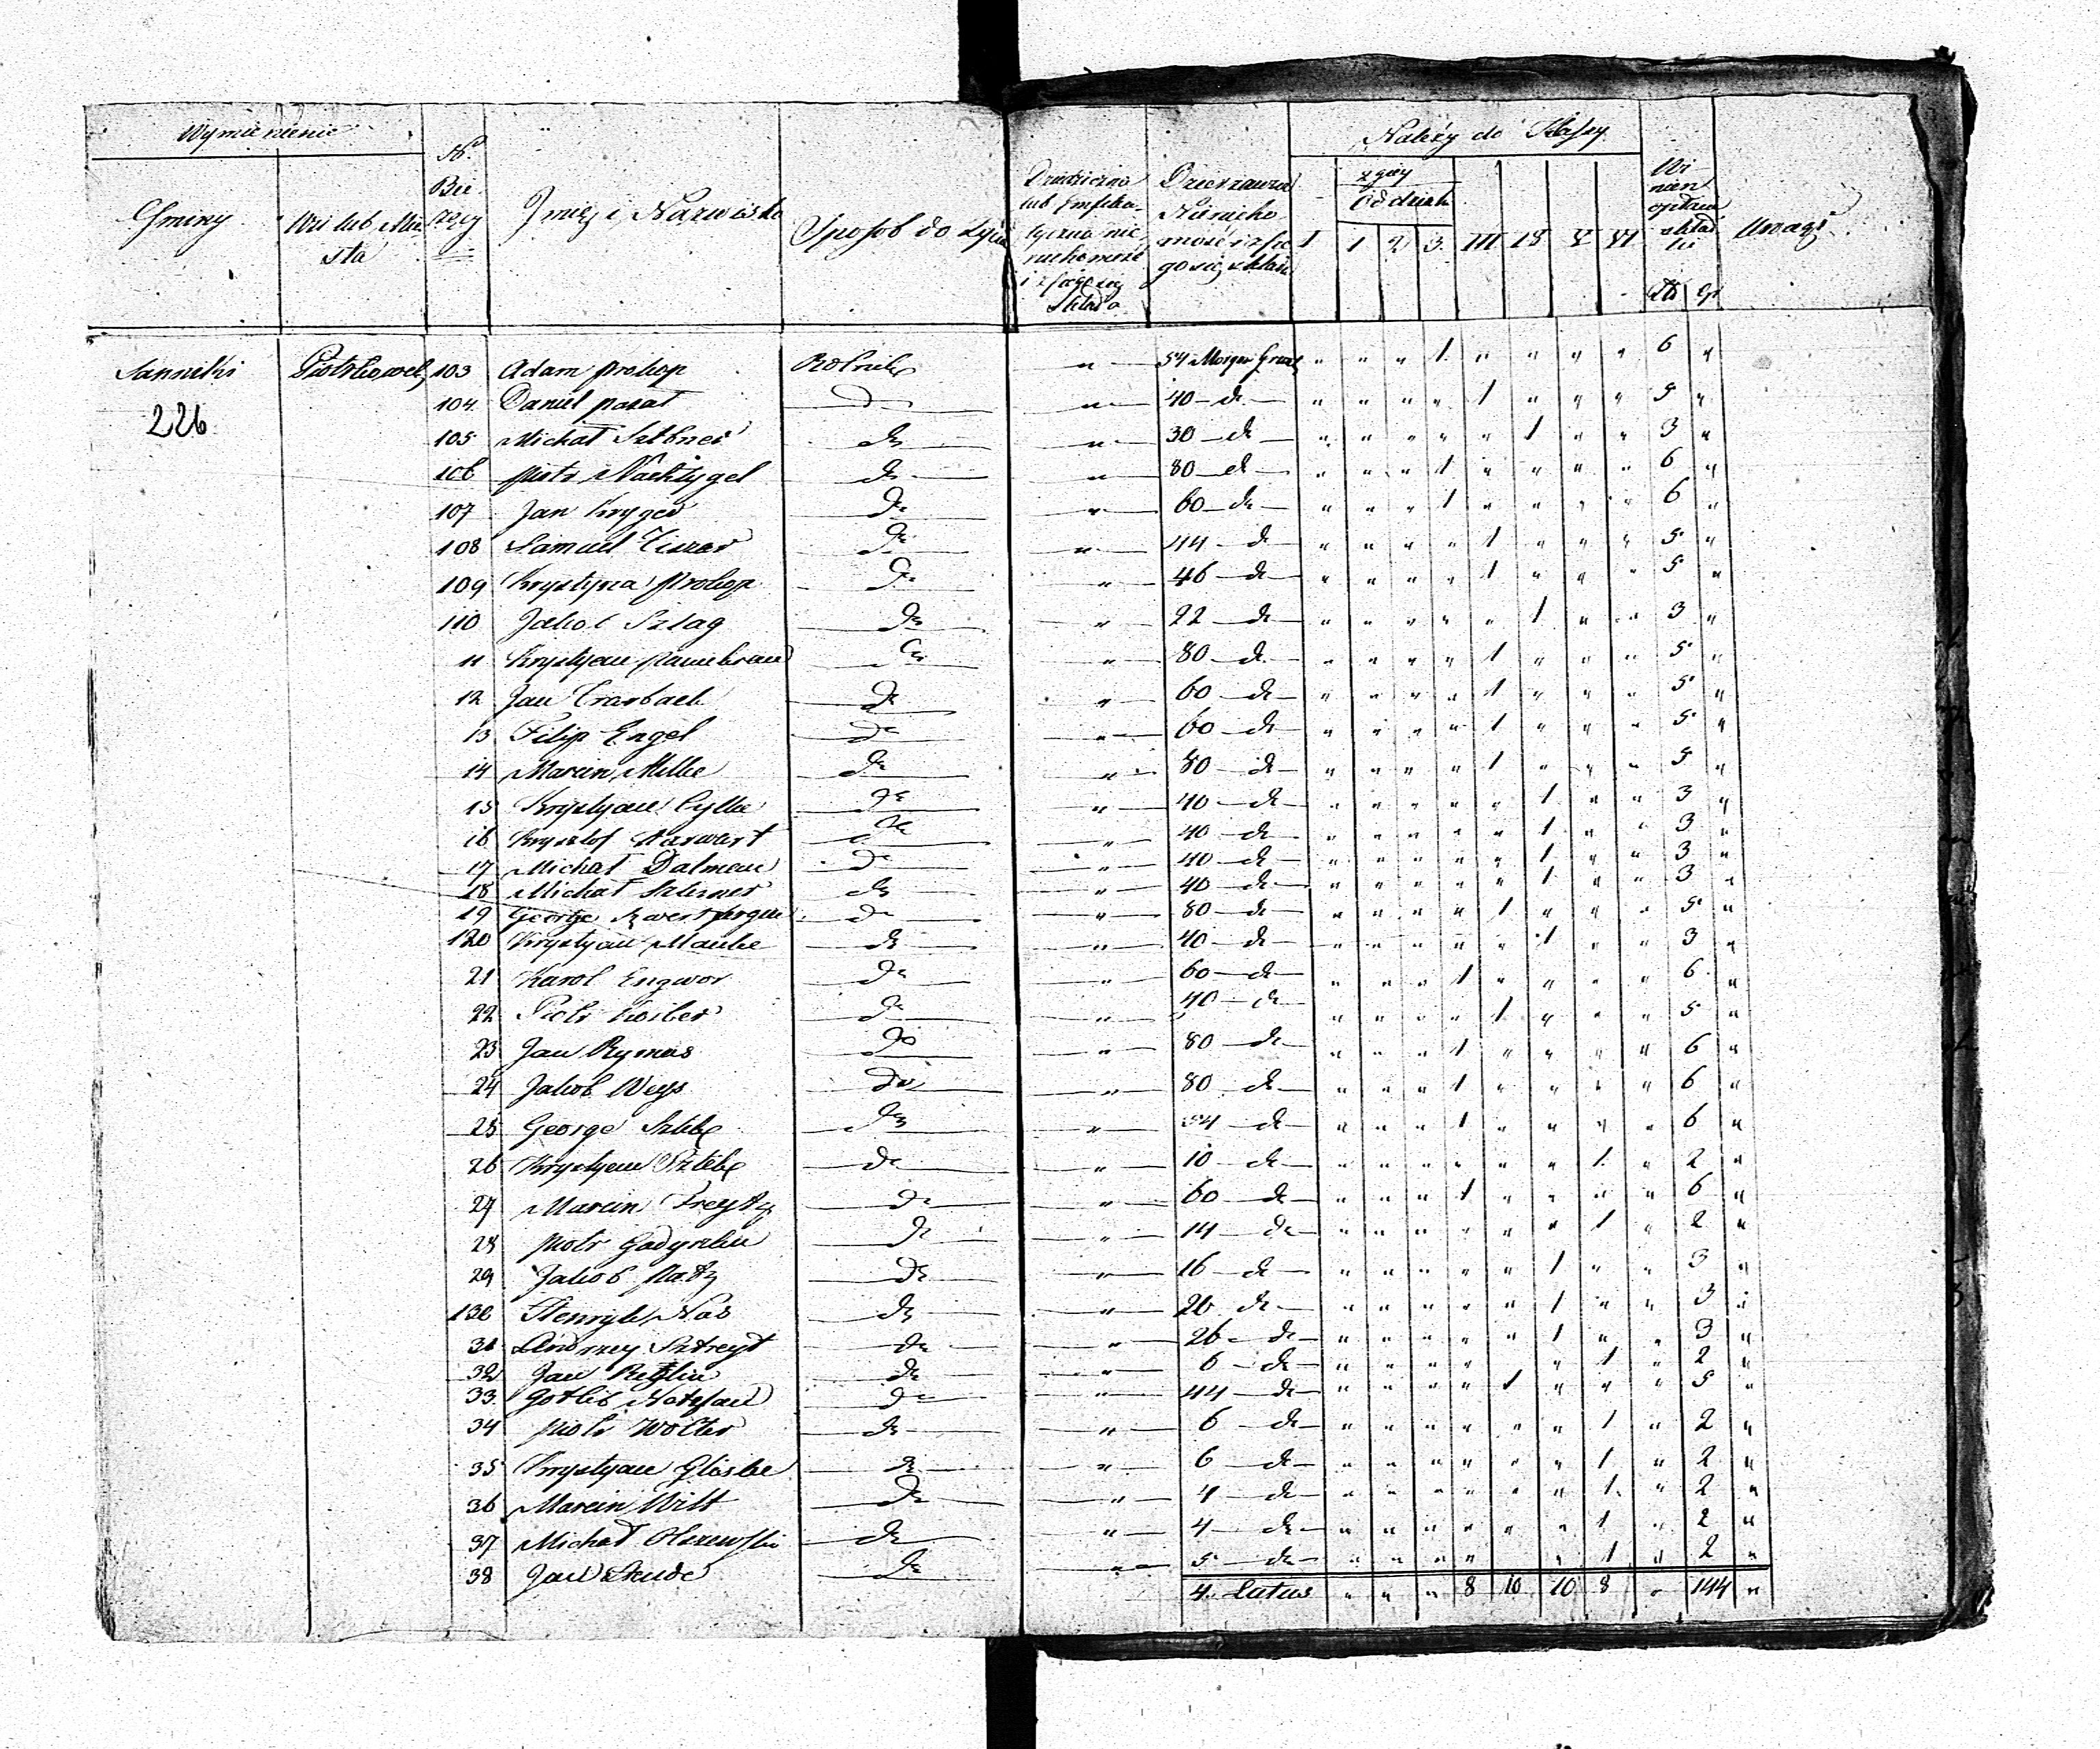 Wymienienie
Gminy
Wsi lub Mia
sta
Nr
Bie
rzący
Imię i Nazwisko
Sposób do życia
Dziedziczna
lub Emfiteu-
tyczna nie
ruchomość
i z czego się
składa
Dzierzawna
Nieruchomość i z cze
go się składa
Należy do Klassy
I
2giey
Oddział
1 2 3. III IV V VI
Wi
nien
opłacać
składki
Zł gr
Uwagi
Sanniki Piotrkówek 103 Adam Prokop Rolnik " 54 Morgów Grun " " " 1 " " " " 6 "
226
104 Daniel Posat do " 40 do " " " " 1 " " " 5 "
105 Michał Sztbner do " 30 do " " " " " 1 " " 3 "
106 Piotr Nachtygel do " 80 do " " " 1 " " " " 6 "
107 Jan Kryger do " 60 do " " " 1 " " " " 6 "
108 Samuel Ciszar do " 44 do " " " " 1 " " " 5 "
109 Krystyna Prokop do " 46 do " " " " 1 " " " 5 "
110 Jakob Szlag do " 22 do " " " " " 1 " " 3 "
11 Krystyan do " 80 do " " " " 1 " " " 5 "
12 Jan Trarbach do " 60 do " " " " 1 " " " 5 "
13 Filip Engel do " 60 do " " " " 1 " " " 5 "
14 Marcin Milke do " 80 do " " " " 1 " " " 5 "
15 Krystyan Cylke do " 40 do " " " " " 1 " " 3 "
16 Krysztof Harwart do " 40 do " " " " " 1 " " 3 "
17 Michał Dalman do " 40 do " " " " " 1 " " 3 "
18 Michał Szlerner do " 40 do " " " " " 1 " " 3 "
19 George do " 80 do " " " " 1 " " " 5 "
120 Krystyan Manke do " 40 do " " " " " 1 " " 3 "
21 Karol Engwor do " 60 do " " " 1 " " " " 6 "
22 Piotr Kosber do " 40 do " " " " 1 " " " 5 "
23 Jan Rymas do " 80 do " " " 1 " " " " 6 "
24 Jakob Weys do " 80 do " " " 1 " " " " 6 "
25 George Sztibe do " 54 do " " " 1 " " " " 6 "
26 Krystyan Sztibe do " 10 do " " " " " " 1 " 2 "
27 Marcin Freytg do " 60 do " " " 1 " " " " 6 "
28 Piotr Godynke do " 14 do " " " " " " 1 " 2 "
29 Jakob Ratz do " 16 do " " " " " 1 " " 3 "
130 Henryk Nas do " 20 do " " " " " 1 " " 3 "
31 Andrzey Sztreyt do " 26 do " " " " " 1 " " 3 "
32 Jan Retzlin do " 6 do " " " " " 1 " 2 "
33 Gotlib Notzfan do " 44 do " " " " 1 " " " 5 "
34 Piotr Wolter do " 6 do " " " " " " 1 " 2 "
35 Krystyan Gliske do " 6 do " " " " " " 1 " 2 "
36 Marcin Wilt do " 4 do " " " " " " 1 " 2 "
37 Michał Olszewski do " 4 do " " " " " " 1 " 2 "
38 Jan do " 5 do " " " " " 1 " 2 "
4. Latus " " " 8 10 10 8 " 144 "